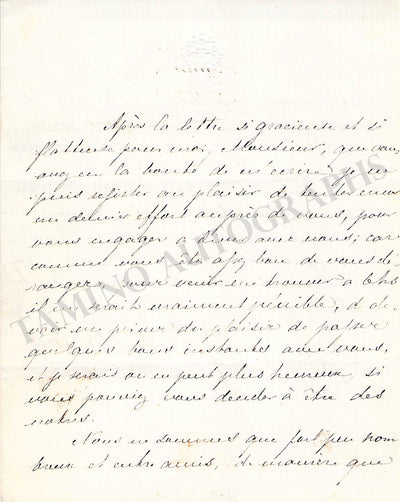 Après la lettre si gracieuse et si
flatteuse pour moi, Monsieur, que vous
avez eu la bonté de m'écrire, je ne
puis résister au plaisir de tenter encore
un dernier effort auprès de vous, pour
vous engager à dîner avec nous; car
comme vous êtes assez bon de vous dé-
ranger, pour venir me trouver à
il me serait vraiment pénible, de de-
voir me priver du plaisir de passer
quelques bons instants avec vous,
et je serais on ne peut plus heureux, si
vous pouviez vous décider à être des
nôtres.
Nous ne sommes que fort peu nom
breux et entre amis, de manière que
TAMINO AUTOGRAPHS